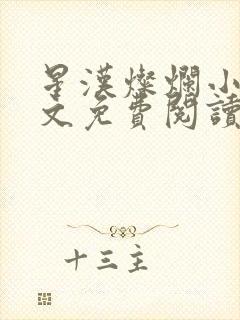 星漢燦爛小
文免費閱讀
十三主